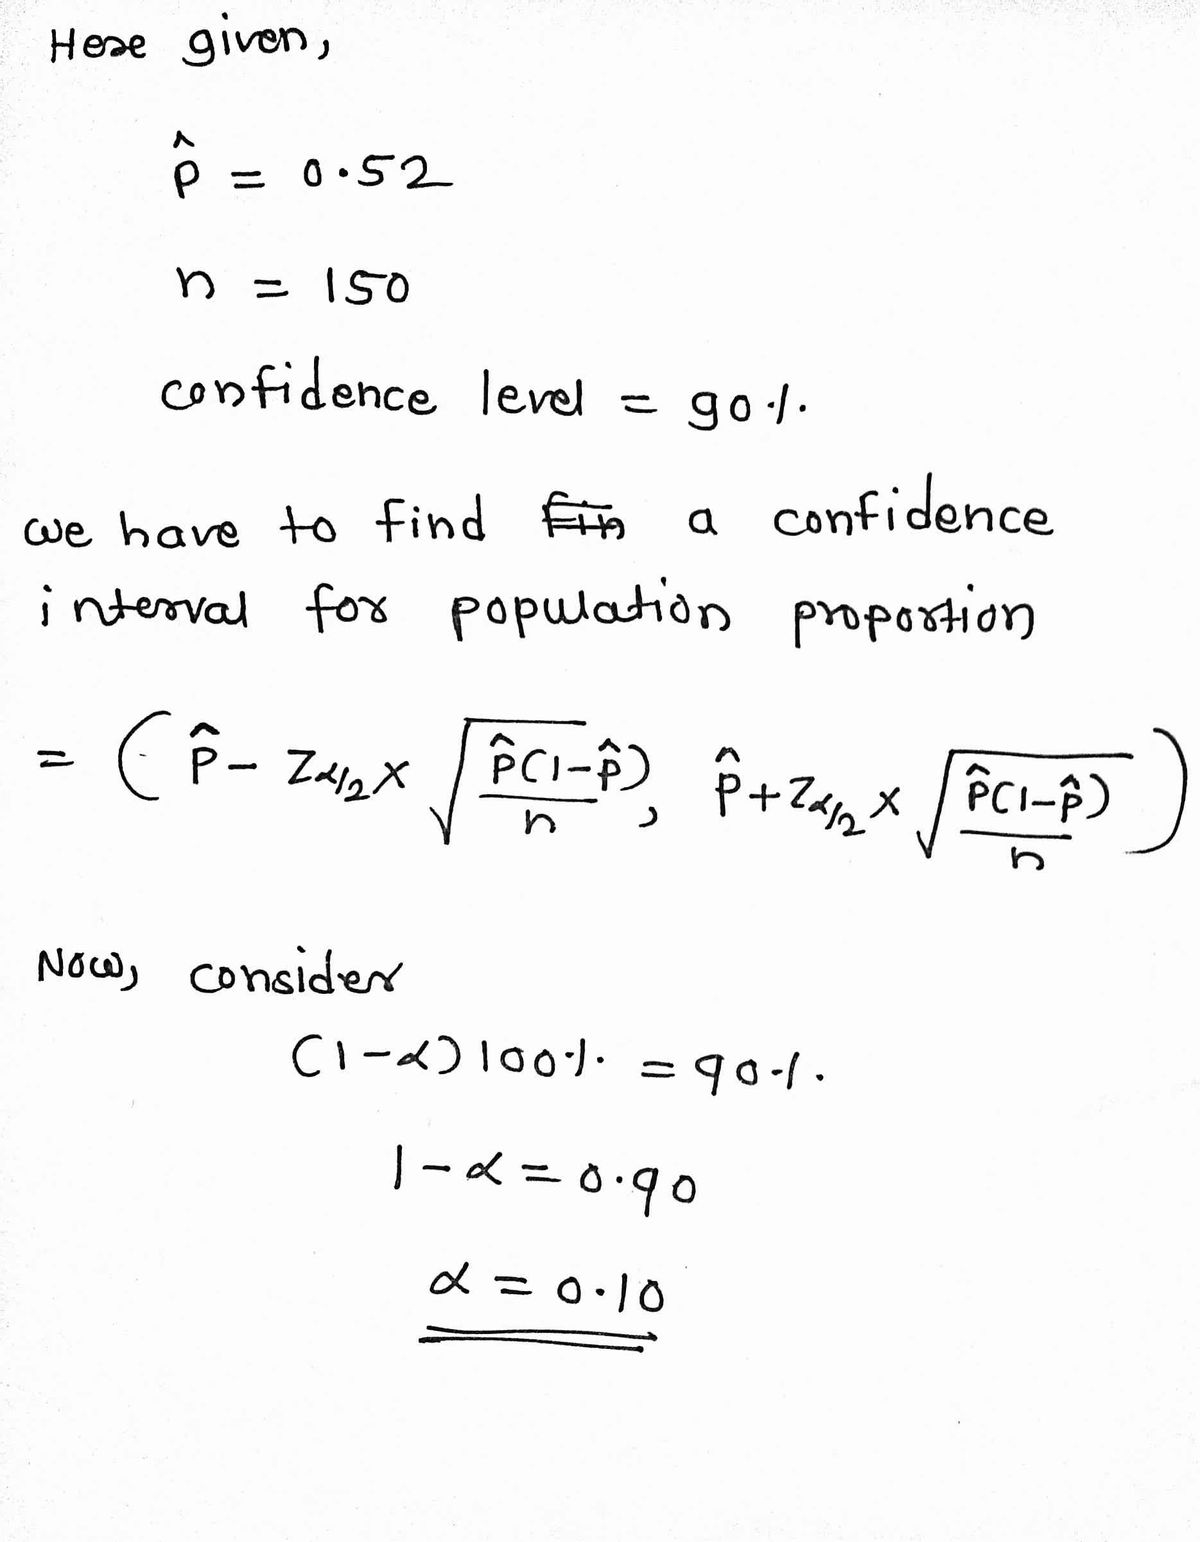 Here given,
p̂ = 0.52
n = 150
confidence level = 90%.
we have to find a confidence
interval for population proportion
= ( p̂ - Zα/2 × √(p̂(1-p̂)/n), p̂ + Zα/2 × √(p̂(1-p̂)/n) )
Now, consider
(1-α)100% = 90%.
1-α = 0.90
α = 0.10